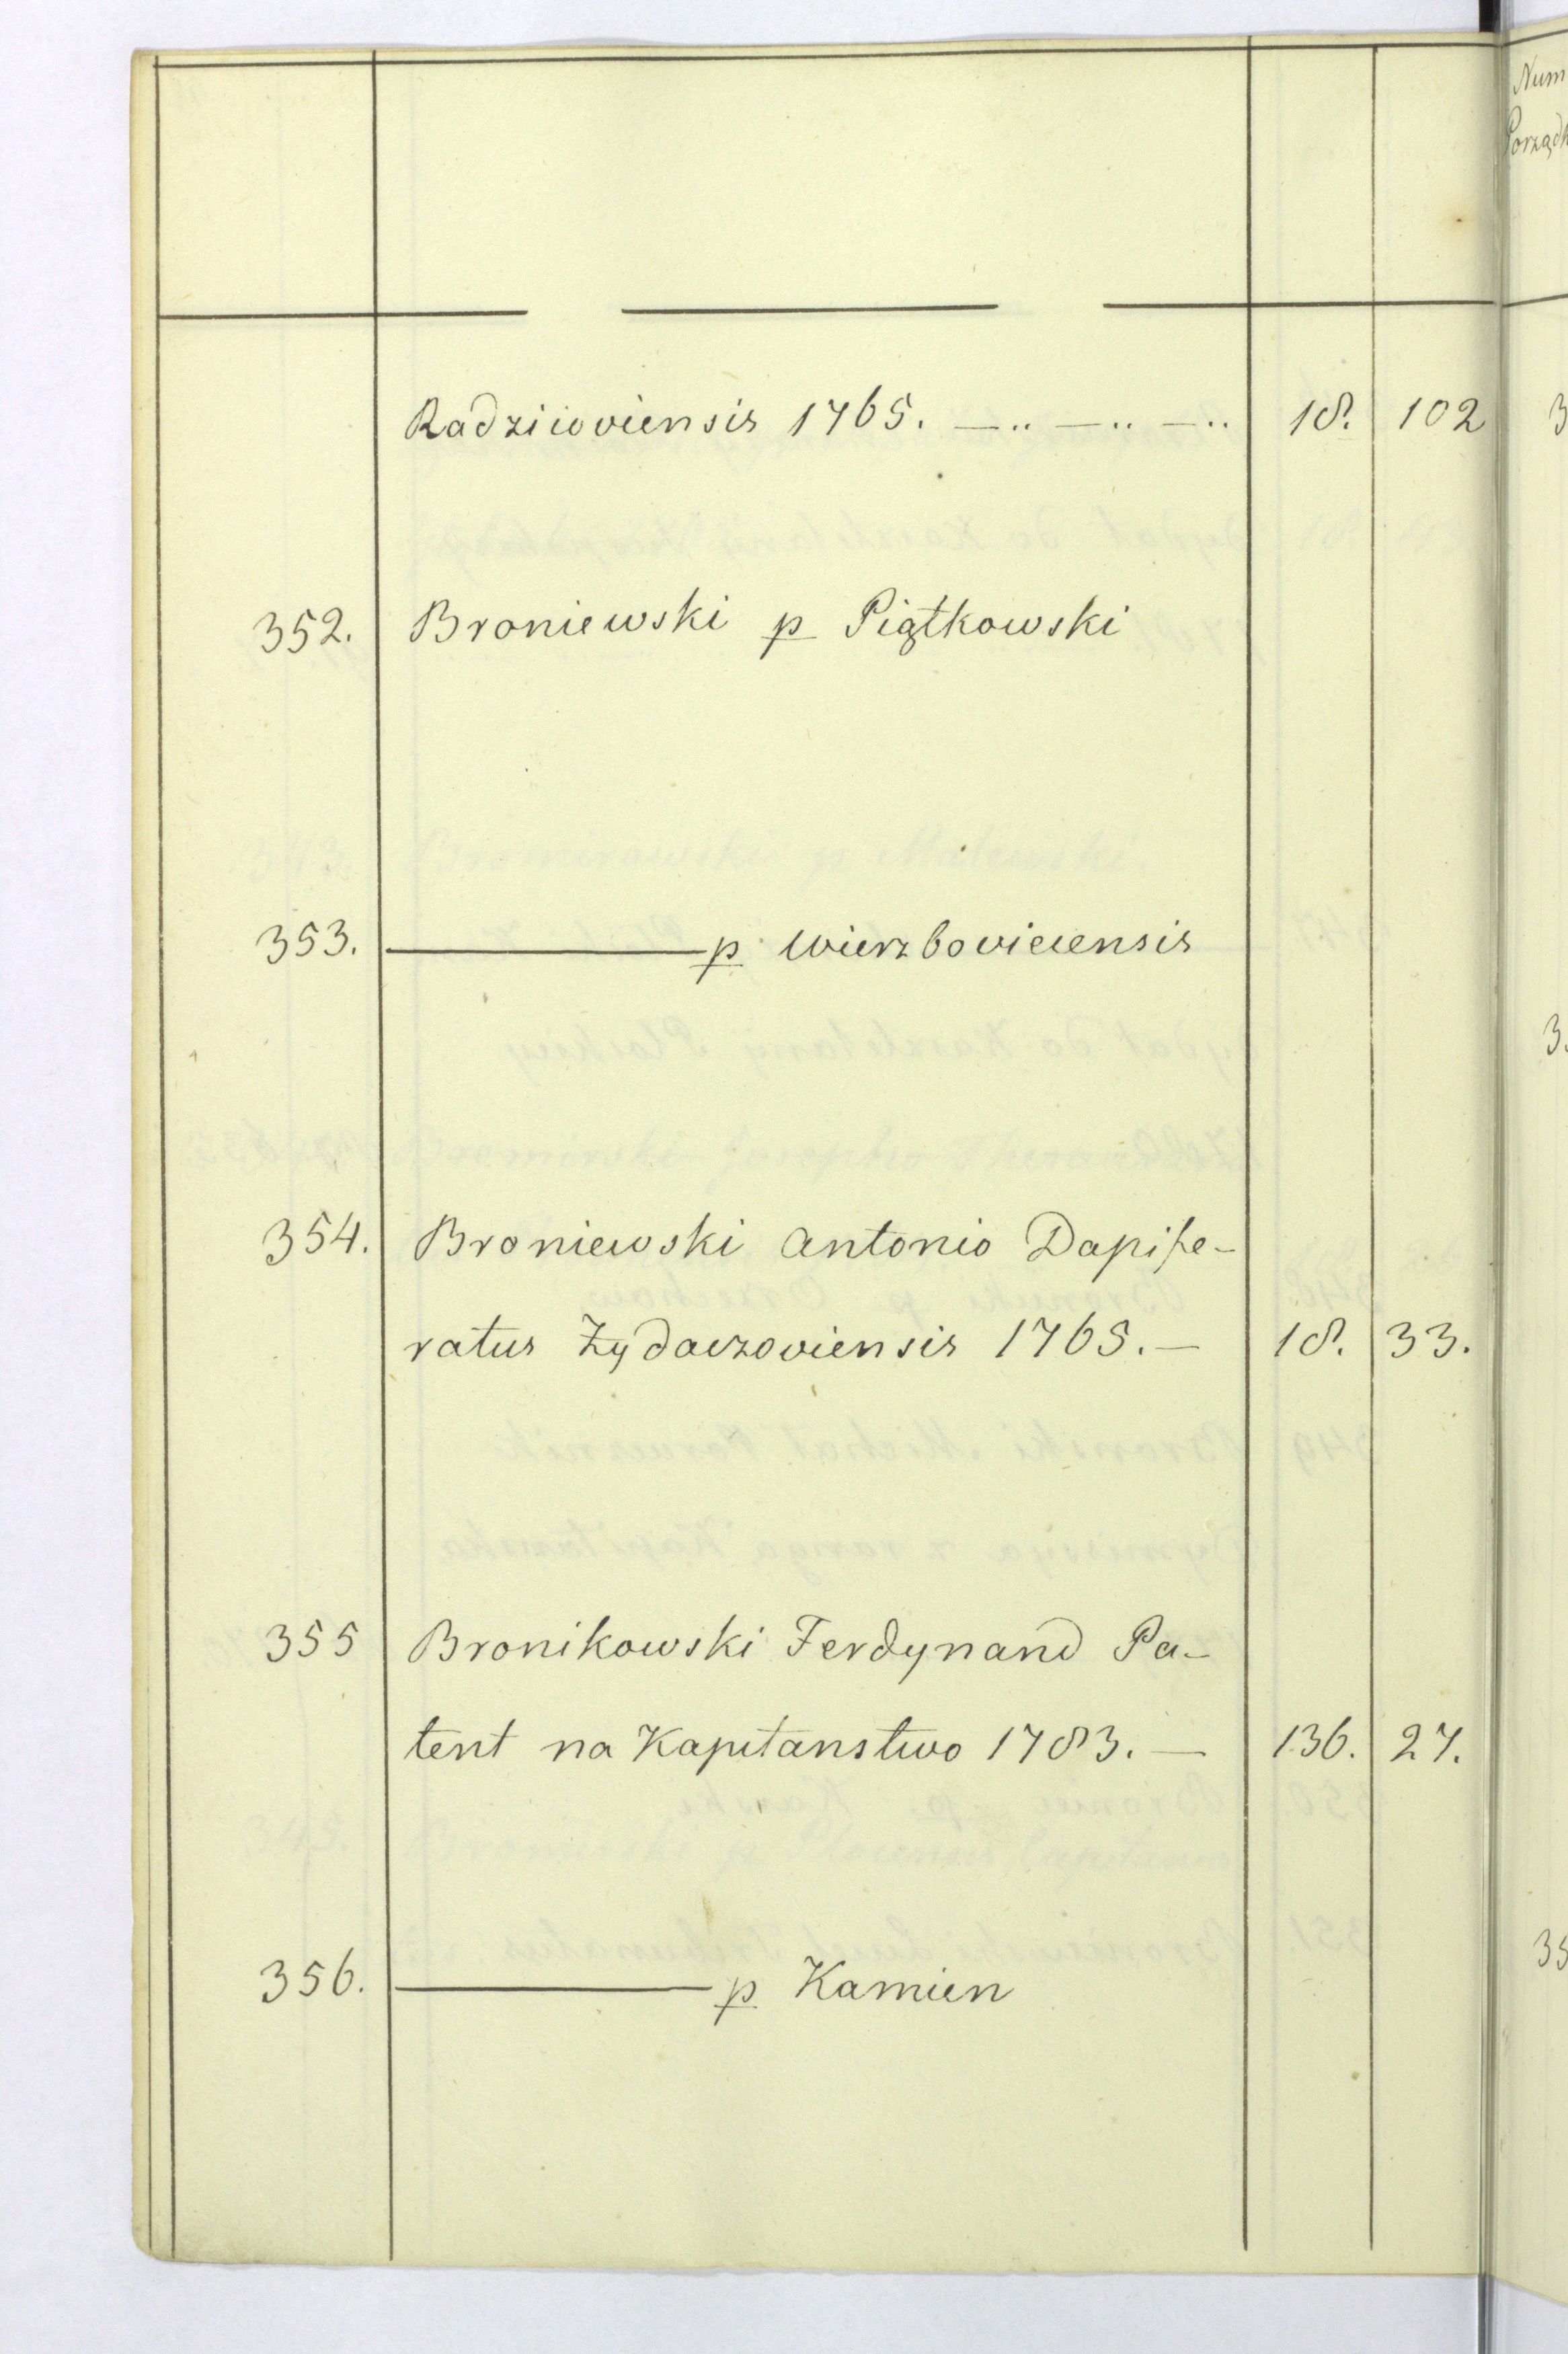 Radziioviensis 1765. — .. — .. — .. 18. 102
352. Broniewski p Piątkowski
353. ——— p Wierzboviecensis
354. Broniewski Antonio Dapife-
ratus Żydaczoviensis 1765. — 18. 33.
355 Bronikowski Ferdynand Pa-
tent na Kapitanstwo 1783. — 136. 27.
356. ——— p Kamien
Num
Porządk